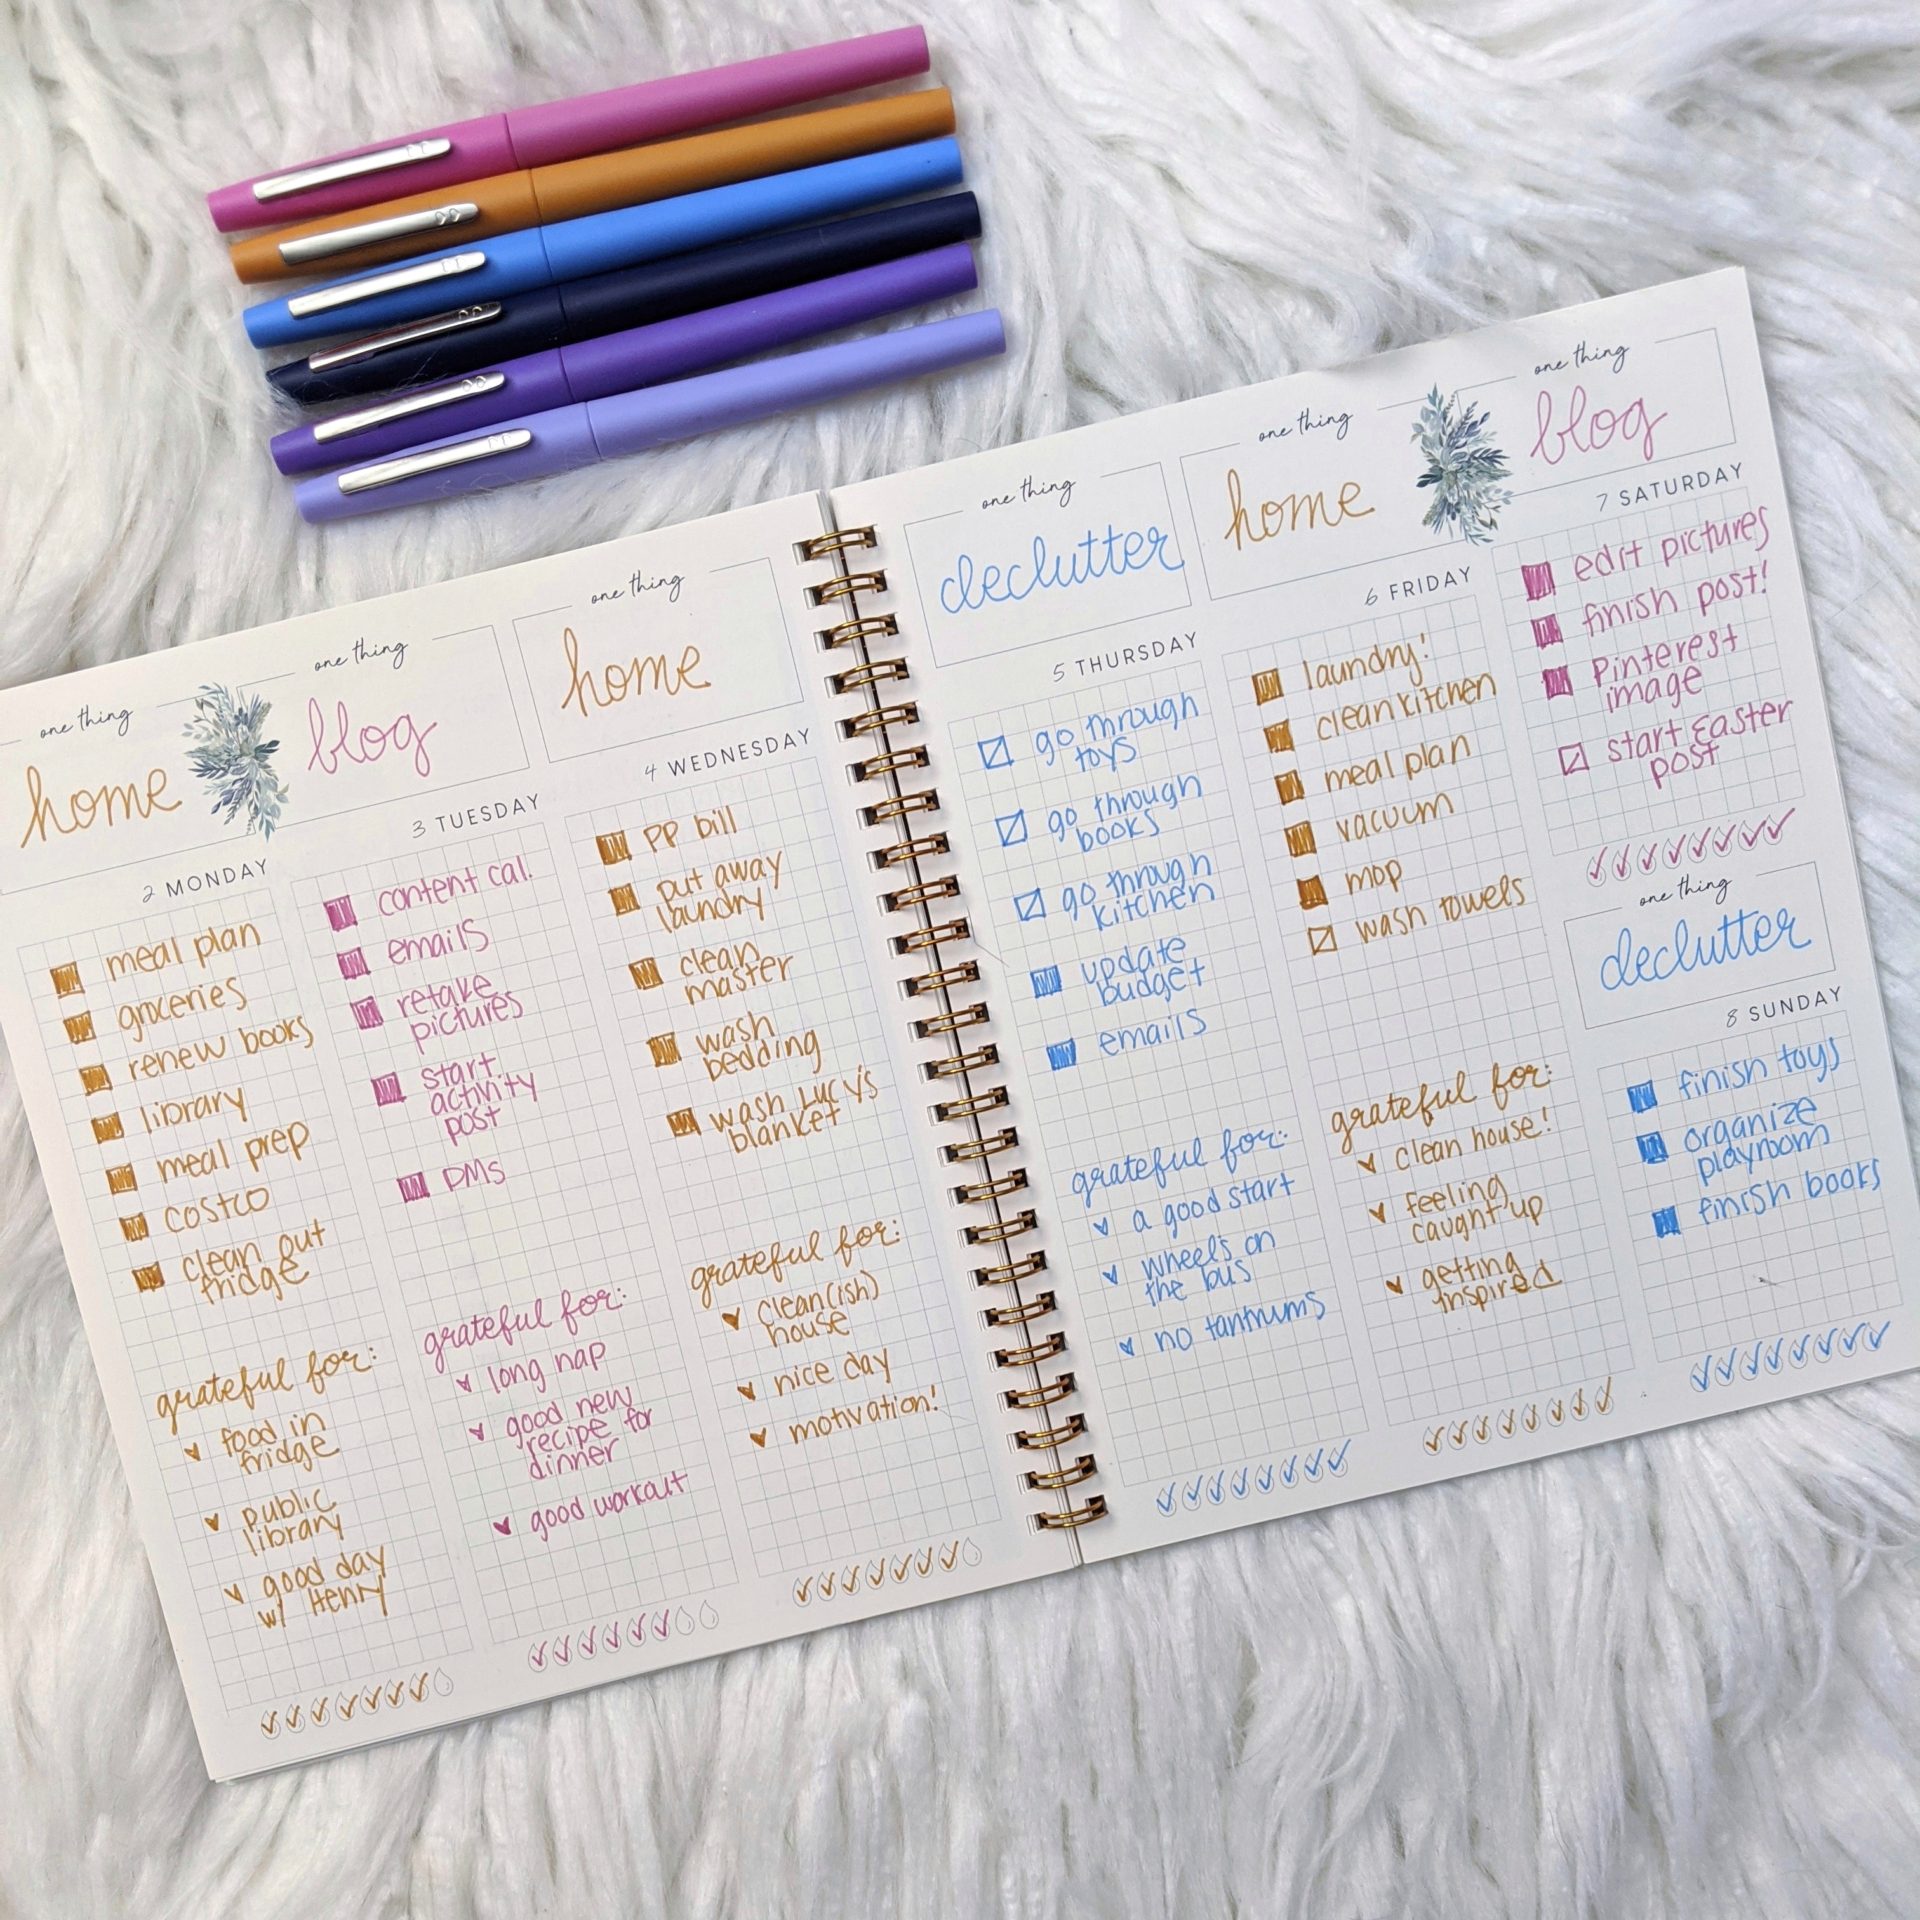 one thing
home
2 MONDAY
meal plan
groceries
renew books
library
meal prep
costco
clean out
fridge
grateful for:
food in
fridge
public
library
good day
w/ Henry
one thing
blog
3 TUESDAY
content cal.
emails
retake
pictures
start
activity
post
DMs
grateful for:
long nap
good new
recipe for
dinner
good workout
one thing
home
4 WEDNESDAY
PP bill
put away
laundry
clean
master
wash
bedding
wash Lucy's
blanket
grateful for:
clean(ish)
house
nice day
motivation!
one thing
declutter
5 THURSDAY
go through
toys
go through
books
go through
kitchen
update
budget
emails
grateful for:
a good start
wheels on
the bus
no tantrums
one thing
home
6 FRIDAY
laundry!
clean kitchen
meal plan
vacuum
mop
wash towels
grateful for:
clean house!
feeling
caught up
getting
inspired
one thing
blog
7 SATURDAY
edit pictures
finish post!
Pinterest
image
start Easter
post
one thing
declutter
8 SUNDAY
finish toys
organize
playroom
finish books